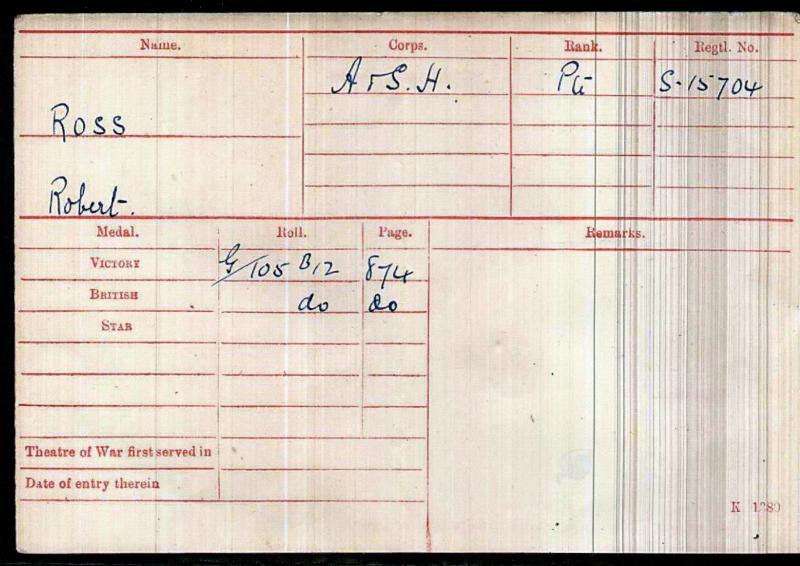 Name. Corps. Rank. Regtl. No.
A & S. H. Pte S-15704
Ross
Robert.
Medal. Roll. Page. Remarks.
Victory G/105 B12 874
British do do
Star
Theatre of War first served in
Date of entry therein
K 1380